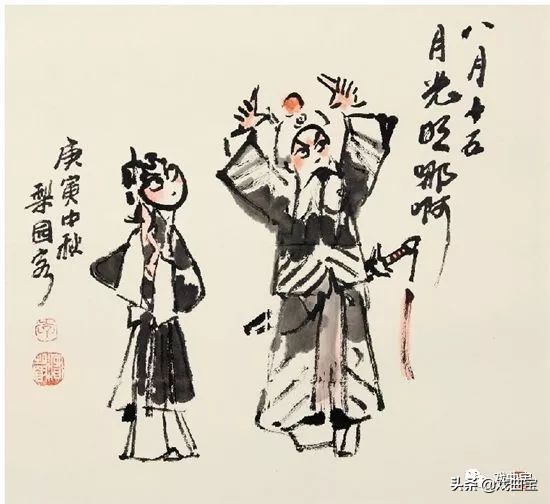 八月十五
月光明哪啊
庚寅中秋
梨园客
头条 @戏曲宝